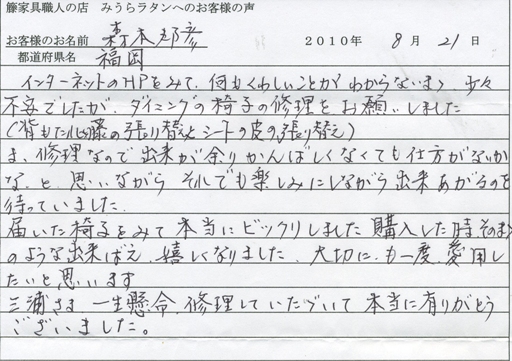 籐家具職人の店　みうらラタンへのお客様の声
お客様のお名前　森本 邦彦　2010年 8月 21日
都道府県名　福岡
インターネットのHPをみて、何もくわしいことがわからないまま 少々
不安でしたが、ダイニングの椅子の修理をお願いしました
(背もたれ籐の張り替えとシートの皮の張り替え)
ま、修理なので出来が余りかんばしくなくても仕方がないか
な、と思いながら それでも楽しみにしながら出来あがるのを
待っていました。
届いた椅子をみて本当にビックリしました 購入した時そのまま
のような出来ばえ、嬉しくなりました、大切に、も一度、愛用し
たいと思います
三浦さま 一生懸命、修理していただいて 本当に有りがとう
ございました。